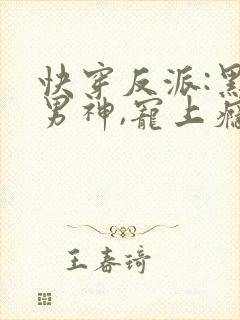 快穿反派:黑
男神,宠上瘾
王春琦